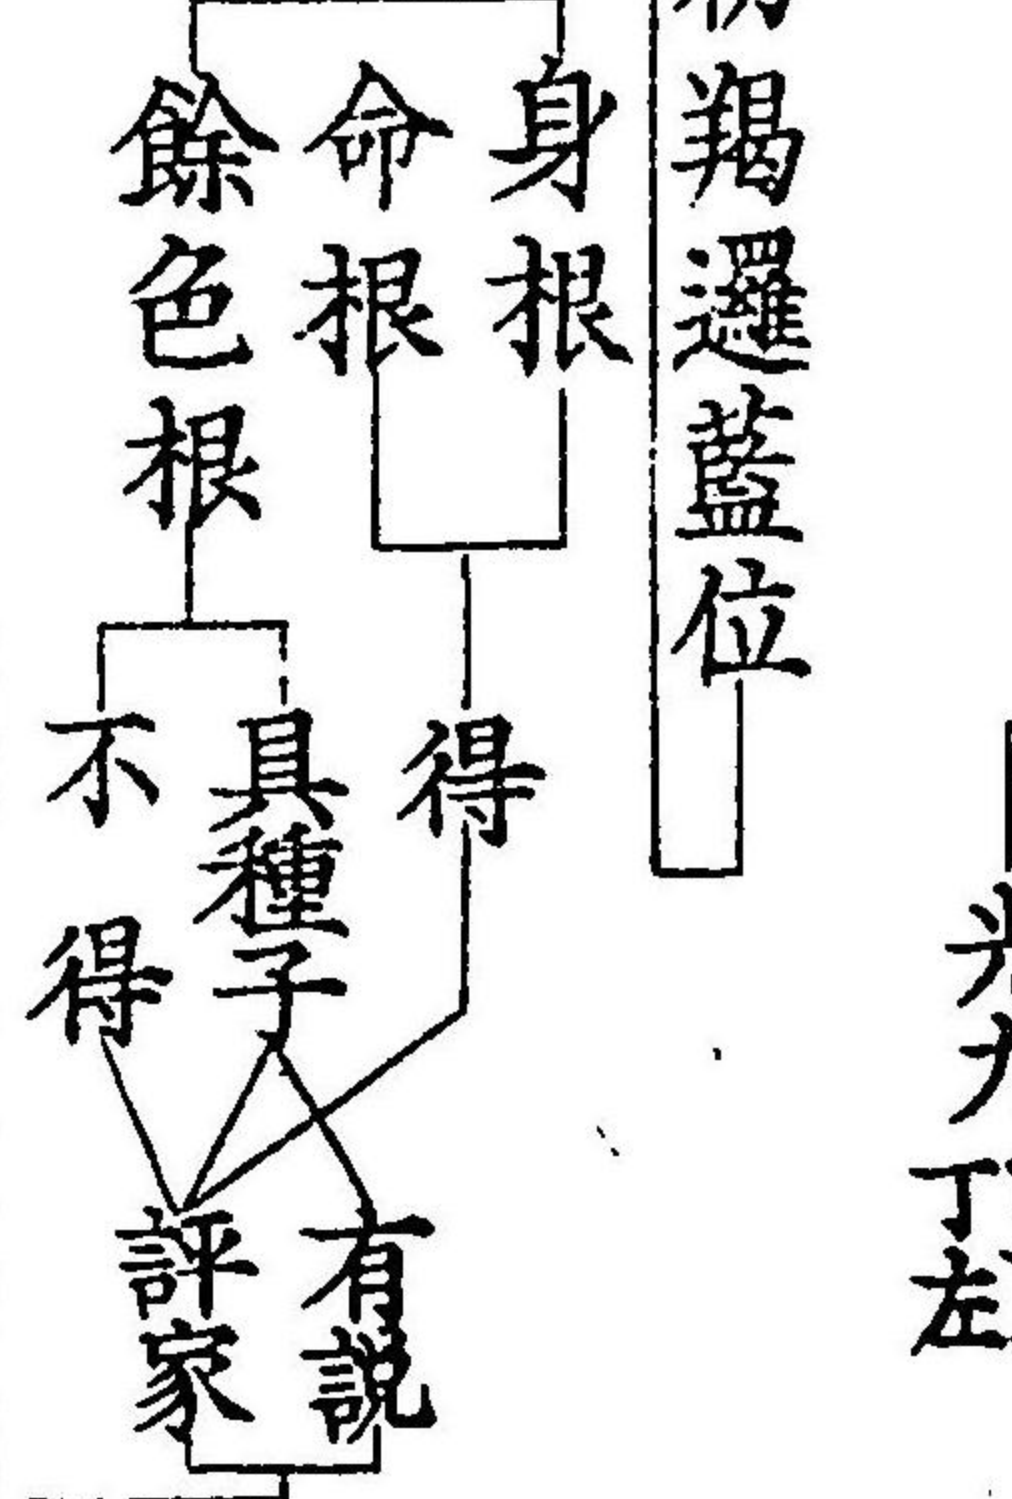 羯邏藍位
身根
命根
餘色根
得
具種子
不得
有説
評家